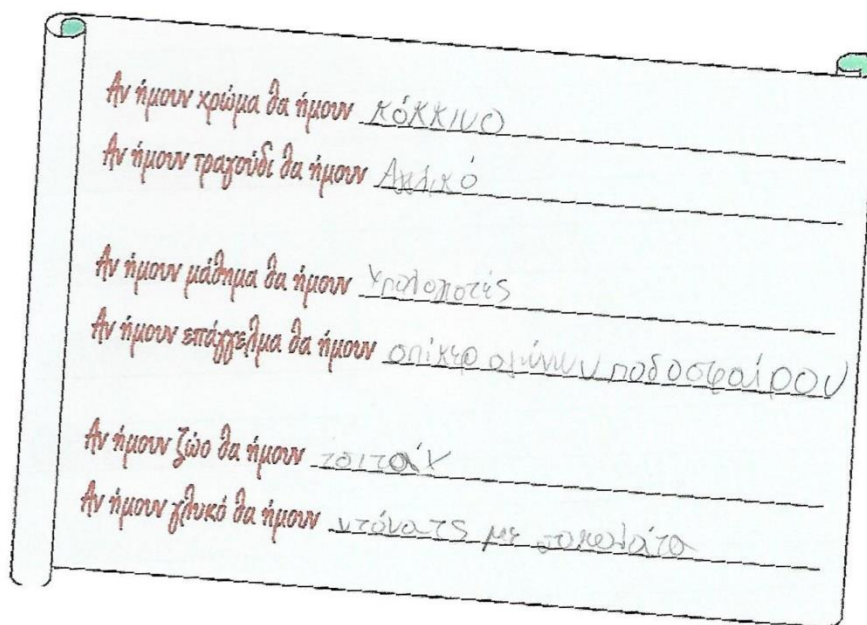 Αν ήμουν χρώμα θα ήμουν κόκκινο
Αν ήμουν τραγούδι θα ήμουν Αγγλικό
Αν ήμουν μάθημα θα ήμουν
Αν ήμουν επάγγελμα θα ήμουν σπίκερ αγώνων ποδοσφαίρου
Αν ήμουν ζώο θα ήμουν τσιτάχ
Αν ήμουν γλυκό θα ήμουν ντόνατς με σοκολάτα